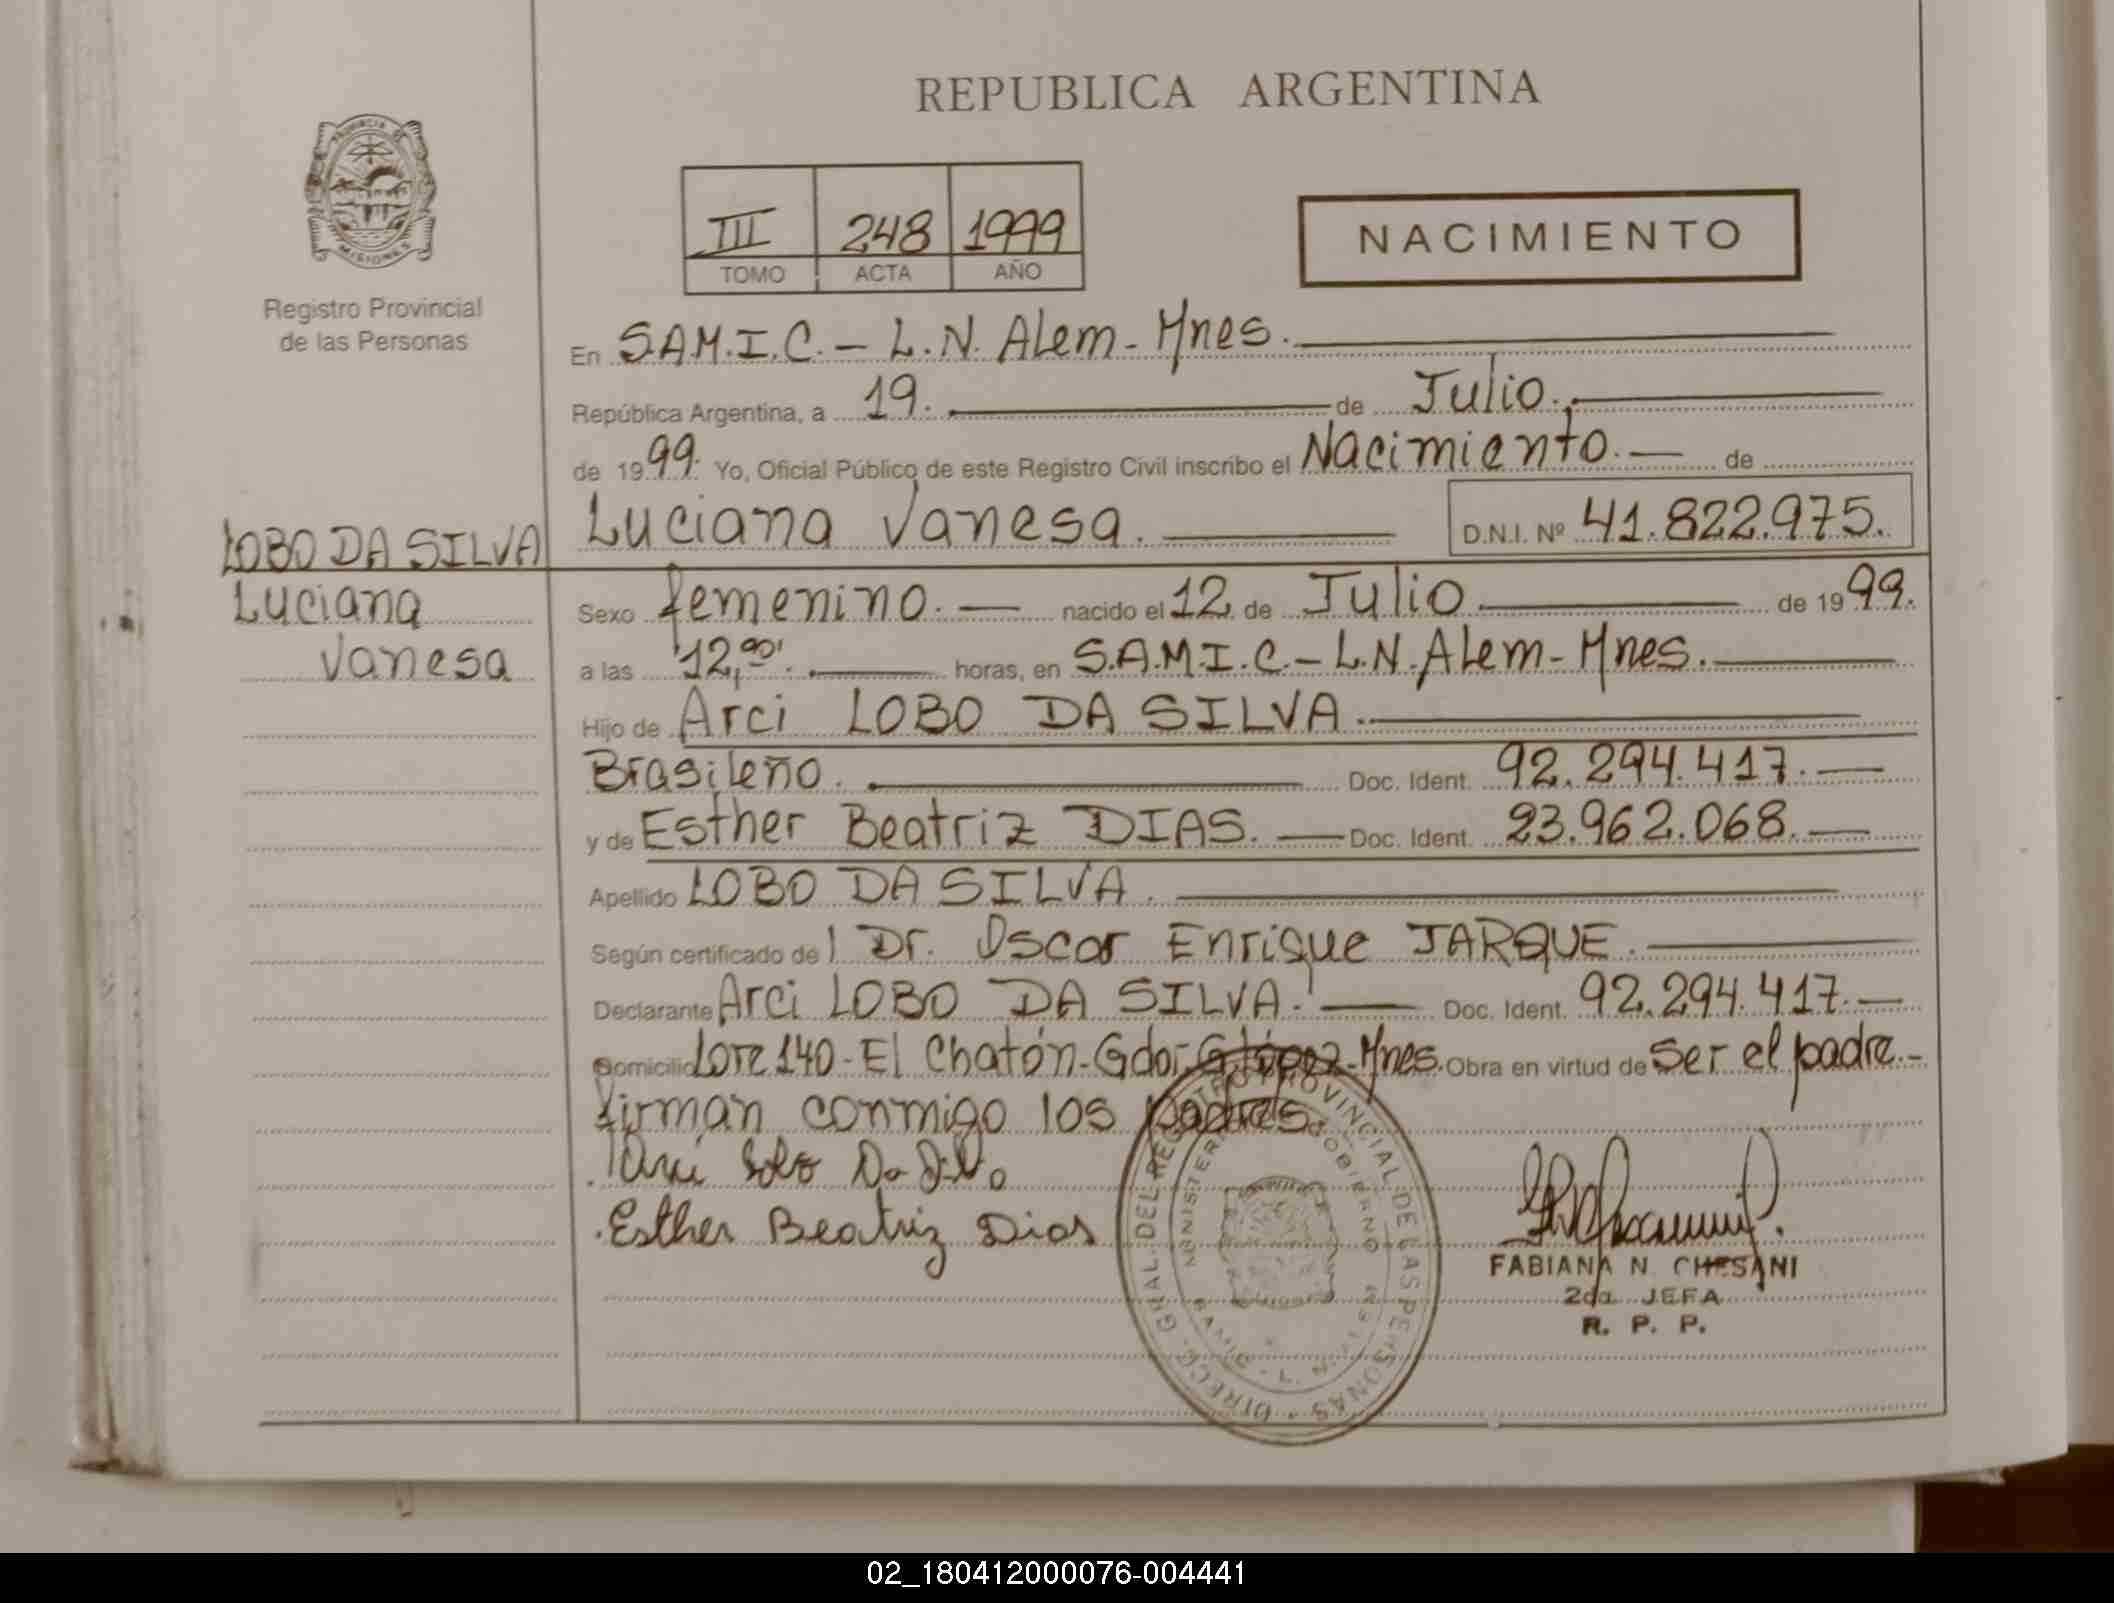 REPUBLICA ARGENTINA
PROVINCIA DE
MISIONES
Registro Provincial
de las Personas
III 248 1999
TOMO ACTA AÑO
NACIMIENTO
En S.A.M.I.C. - L.N. Alem - Mnes.
República Argentina, a 19. de Julio.
de 1999. Yo, Oficial Público de este Registro Civil inscribo el Nacimiento. de
Luciana Vanesa. D.N.I. Nº 41.822.975.
LOBO DA SILVA
Luciana
Vanesa
Sexo femenino. nacido el 12 de Julio de 1999.
a las 12,00 horas, en S.A.M.I.C. - L.N. Alem - Mnes.
Hijo de Arci LOBO DA SILVA.
Brasileño. Doc. Ident. 92.294.417.
y de Esther Beatriz DIAS. Doc. Ident. 23.962.068.
Apellido LOBO DA SILVA.
Según certificado de l Dr. Oscar Enrique JARQUE.
Declarante Arci LOBO DA SILVA. Doc. Ident. 92.294.417.
Domicilio Lote 140 - El Chatón - Gdor. G. López - Mnes. Obra en virtud de ser el padre.-
firman conmigo los padres.
Esther Beatriz Dias
DIRECC. GRAL. DEL REGISTRO PROVINCIAL DE LAS PERSONAS
MINISTERIO GOBIERNO
FABIANA N. CHESANI
2da. JEFA
R. P. P.
02_180412000076-004441